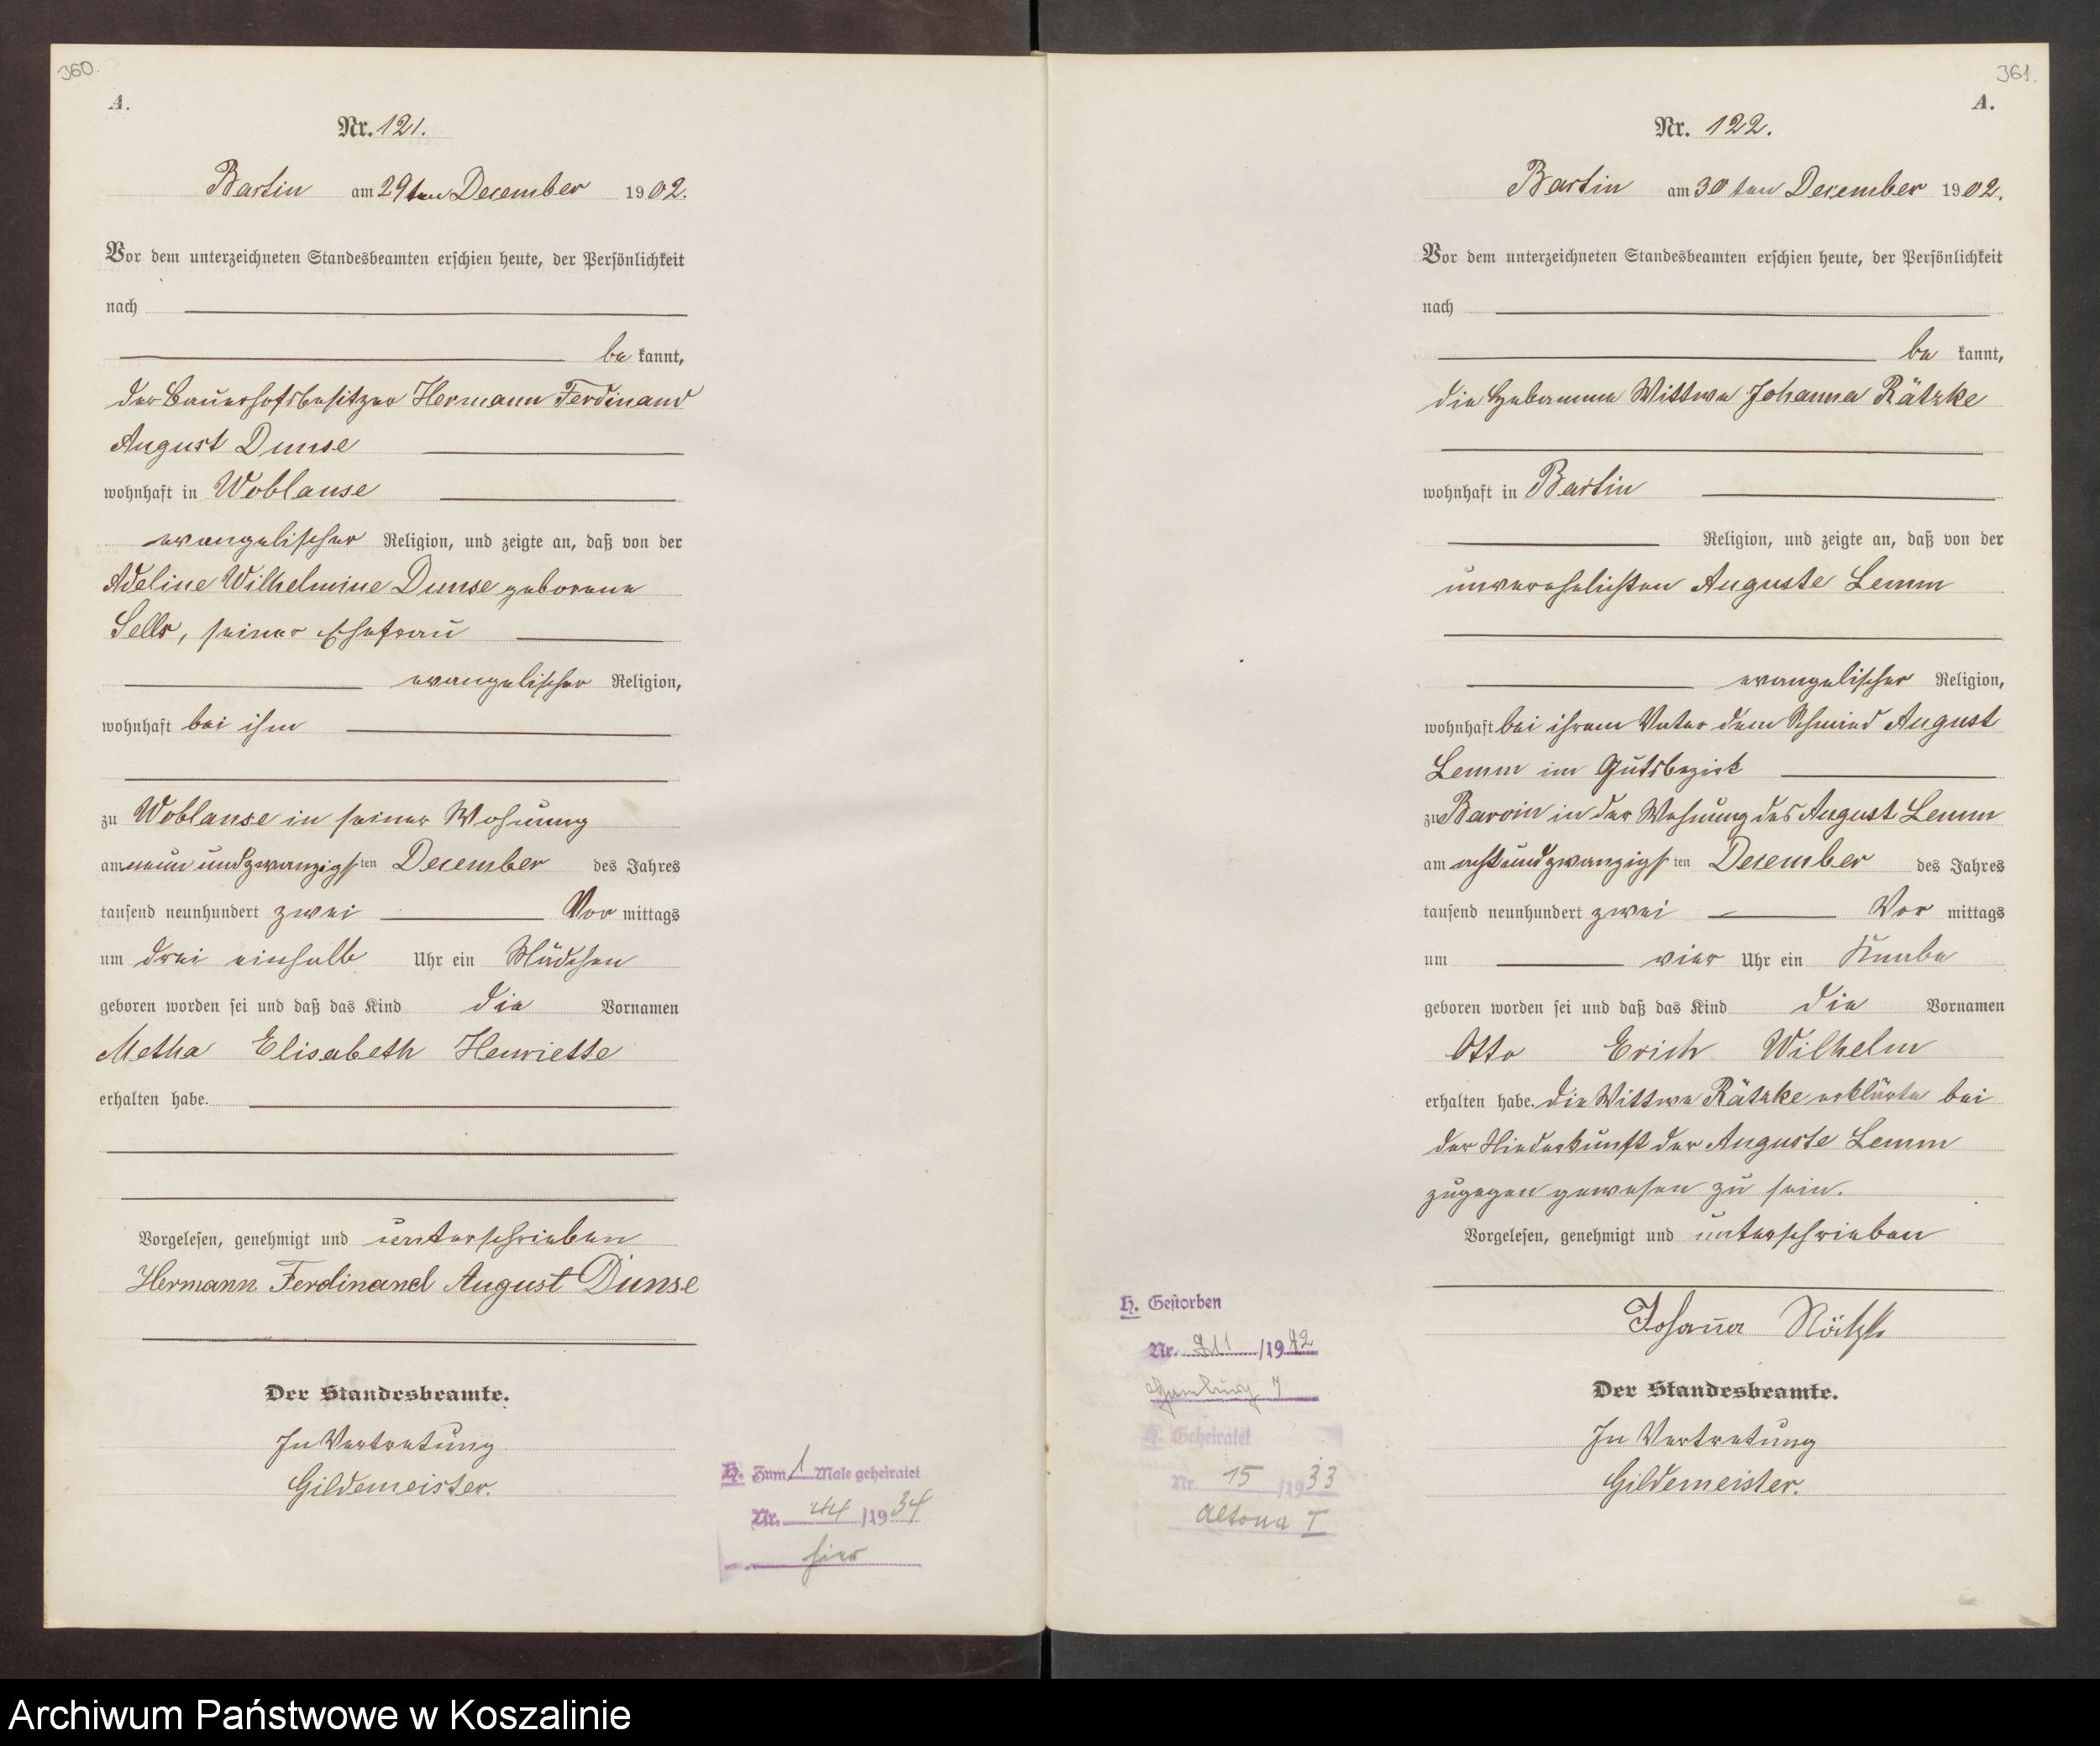 360.
A.
Nr. 121.
Bartin am 29ten December 1902.
Vor dem unterzeichneten Standesbeamten erschien heute, der Persönlichkeit
nach
be kannt,
der Bauerhofsbesitzer Hermann Ferdinand
August Dunse
wohnhaft in Woblanse
evangelischer Religion, und zeigte an, daß von der
Adeline Wilhelmine Dunse geborene
Sells, seiner Ehefrau
evangelischer Religion,
wohnhaft bei ihm
zu Woblanse in seiner Wohnung
am neun und zwanzigsten December des Jahres
tausend neunhundert zwei Vor mittags
um drei einhalb Uhr ein Mädchen
geboren worden sei und daß das Kind die Vornamen
Metha Elisabeth Henriette
erhalten habe.
Vorgelesen, genehmigt und unterschrieben
Hermann Ferdinand August Dunse
Der Standesbeamte.
In Vertretung
Gildemeister.
H. Zum 1 Male geheiratet
Nr. 44 /1934
hier
361.
A.
Nr. 122.
Bartin am 30ten December 1902.
Vor dem unterzeichneten Standesbeamten erschien heute, der Persönlichkeit
nach
be kannt,
die Hebamme Wittwe Johanna Rätzke
wohnhaft in Bartin
Religion, und zeigte an, daß von der
unverehelichten Auguste Lemm
evangelischer Religion,
wohnhaft bei ihrem Vater dem Schmied August
Lemm im Gutsbezirk
zu Barvin in der Wohnung des August Lemm
am achtundzwanzigsten December des Jahres
tausend neunhundert zwei Vor mittags
um vier Uhr ein Knabe
geboren worden sei und daß das Kind die Vornamen
Otto Erich Wilhelm
erhalten habe. Die Wittwe Rätzke erklärte bei
der Niederkunft der Auguste Lemm
zugegen gewesen zu sein.
Vorgelesen, genehmigt und unterschrieben
Johanna Rätzke
Der Standesbeamte.
In Vertretung
Gildemeister.
H. Gestorben
Nr. /19
Hamburg
H. Geheiratet
Nr. 15 /1933
Altona I
Archiwum Państwowe w Koszalinie